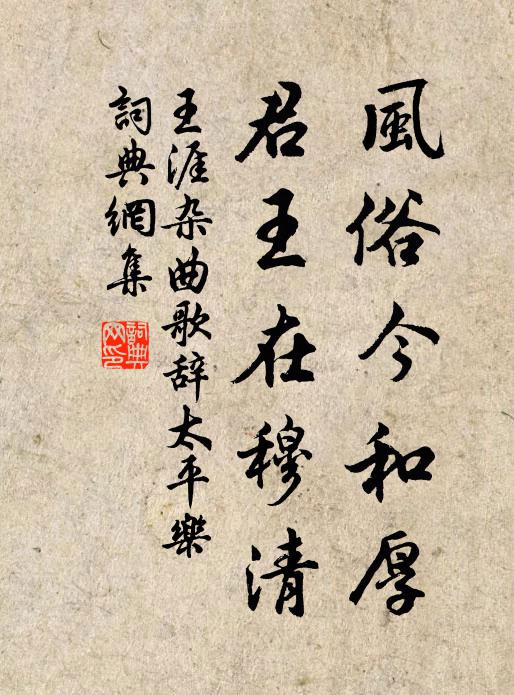 風俗今和厚
君王在穆清
王涯杂曲歌辞太平樂
詞典網集
詞典網印